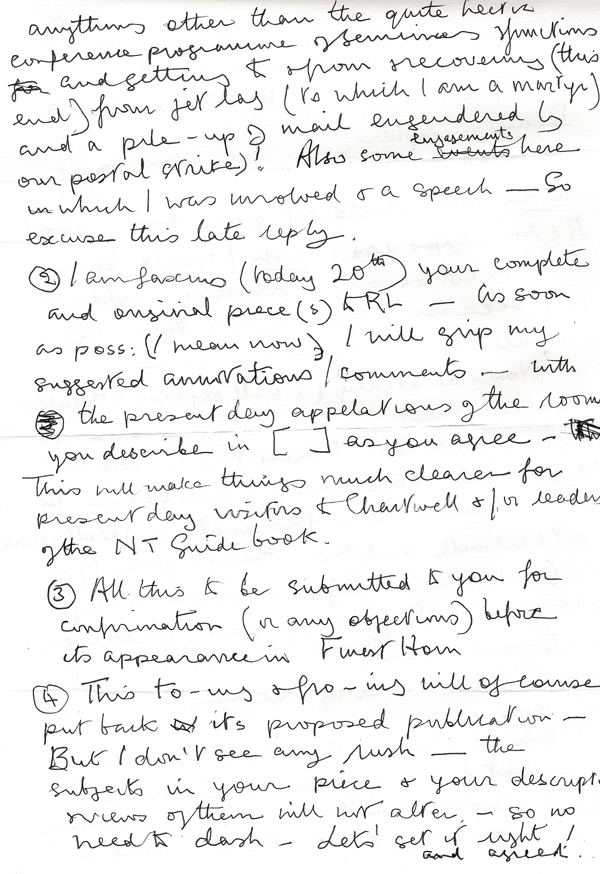 anything other than the quite hectic
conference programme of seminars & functions
and getting to & from & recovering (this
end) from jet lag (to which I am a martyr)
and a pile-up of mail engendered by
our postal strike)! Also some engagements here
in which I was involved & a speech — So
excuse this late reply.
② I am faxing (today 20th) your complete
and original piece(s) to RL — As soon
as poss: (I mean now) I will give my
suggested annotations / comments — with
the present day appelations of the rooms
you describe in [ ] as you agree —
This will make things much clearer for
present day visitors to Chartwell & / or readers
of the NT Guide book.
③ All this to be submitted to you for
confirmation (or any objections) before
its appearance in Finest Hour
④ This to-ing & fro-ing will of course
put back its proposed publication —
But I don't see any rush — the
subjects in your piece & your descript
views of them will not alter — so no
need to dash — Lets' get it right!
and agreed.